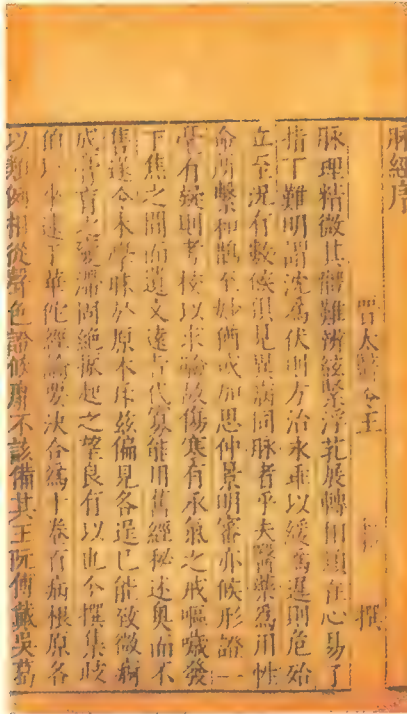 脉經序
晉太醫令王 撰
脉理精微其體難辨絃緊浮芤展轉相類在心易了
指下難明謂沈爲伏則方治永乖以緩爲遲則危殆
立至況有數候俱見異病同脉者乎夫醫藥爲用性
命所繫和鵲至妙猶或加思仲景明審亦候形證一
毫有疑則考校以求驗故傷寒有承氣之戒嘔噦發
下焦之間而遺文遠旨代寡能用舊經秘述奧而不
售遂令末學昧於原本斥茲偏見各逞已能致微痾
成膏肓之變滯固絶振起之望良有以也今撰集岐
伯以來逮于華佗經論要決合爲十卷百病根原各
以類例相從聲色證候靡不該備其王阮傅戴吳葛